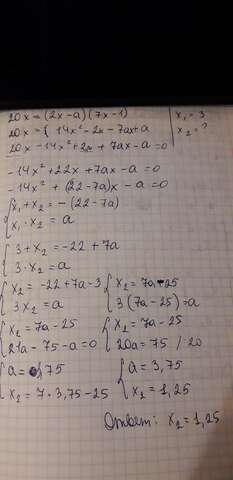 20x = (2x - a)(7x - 1)
x₁ = 3
20x = { 14x² - 2x - 7ax + a
x₂ = ?
20x - 14x² + 2x + 7ax - a = 0
-14x² + 22x + 7ax - a = 0
-14x² + (22 - 7a)x - a = 0
{ x₁ + x₂ = -(22 - 7a)
x₁ · x₂ = a
{ 3 + x₂ = -22 + 7a
3 · x₂ = a
{ x₂ = -22 + 7a - 3
3x₂ = a
{ x₂ = 7a - 25
3(7a - 25) = a
{ x₂ = 7a - 25
21a - 75 - a = 0
{ x₂ = 7a - 25
20a = 75 / 20
{ a = 3,75
x₂ = 7 · 3,75 - 25
{ a = 3,75
x₂ = 1,25
Ответ: x₂ = 1,25